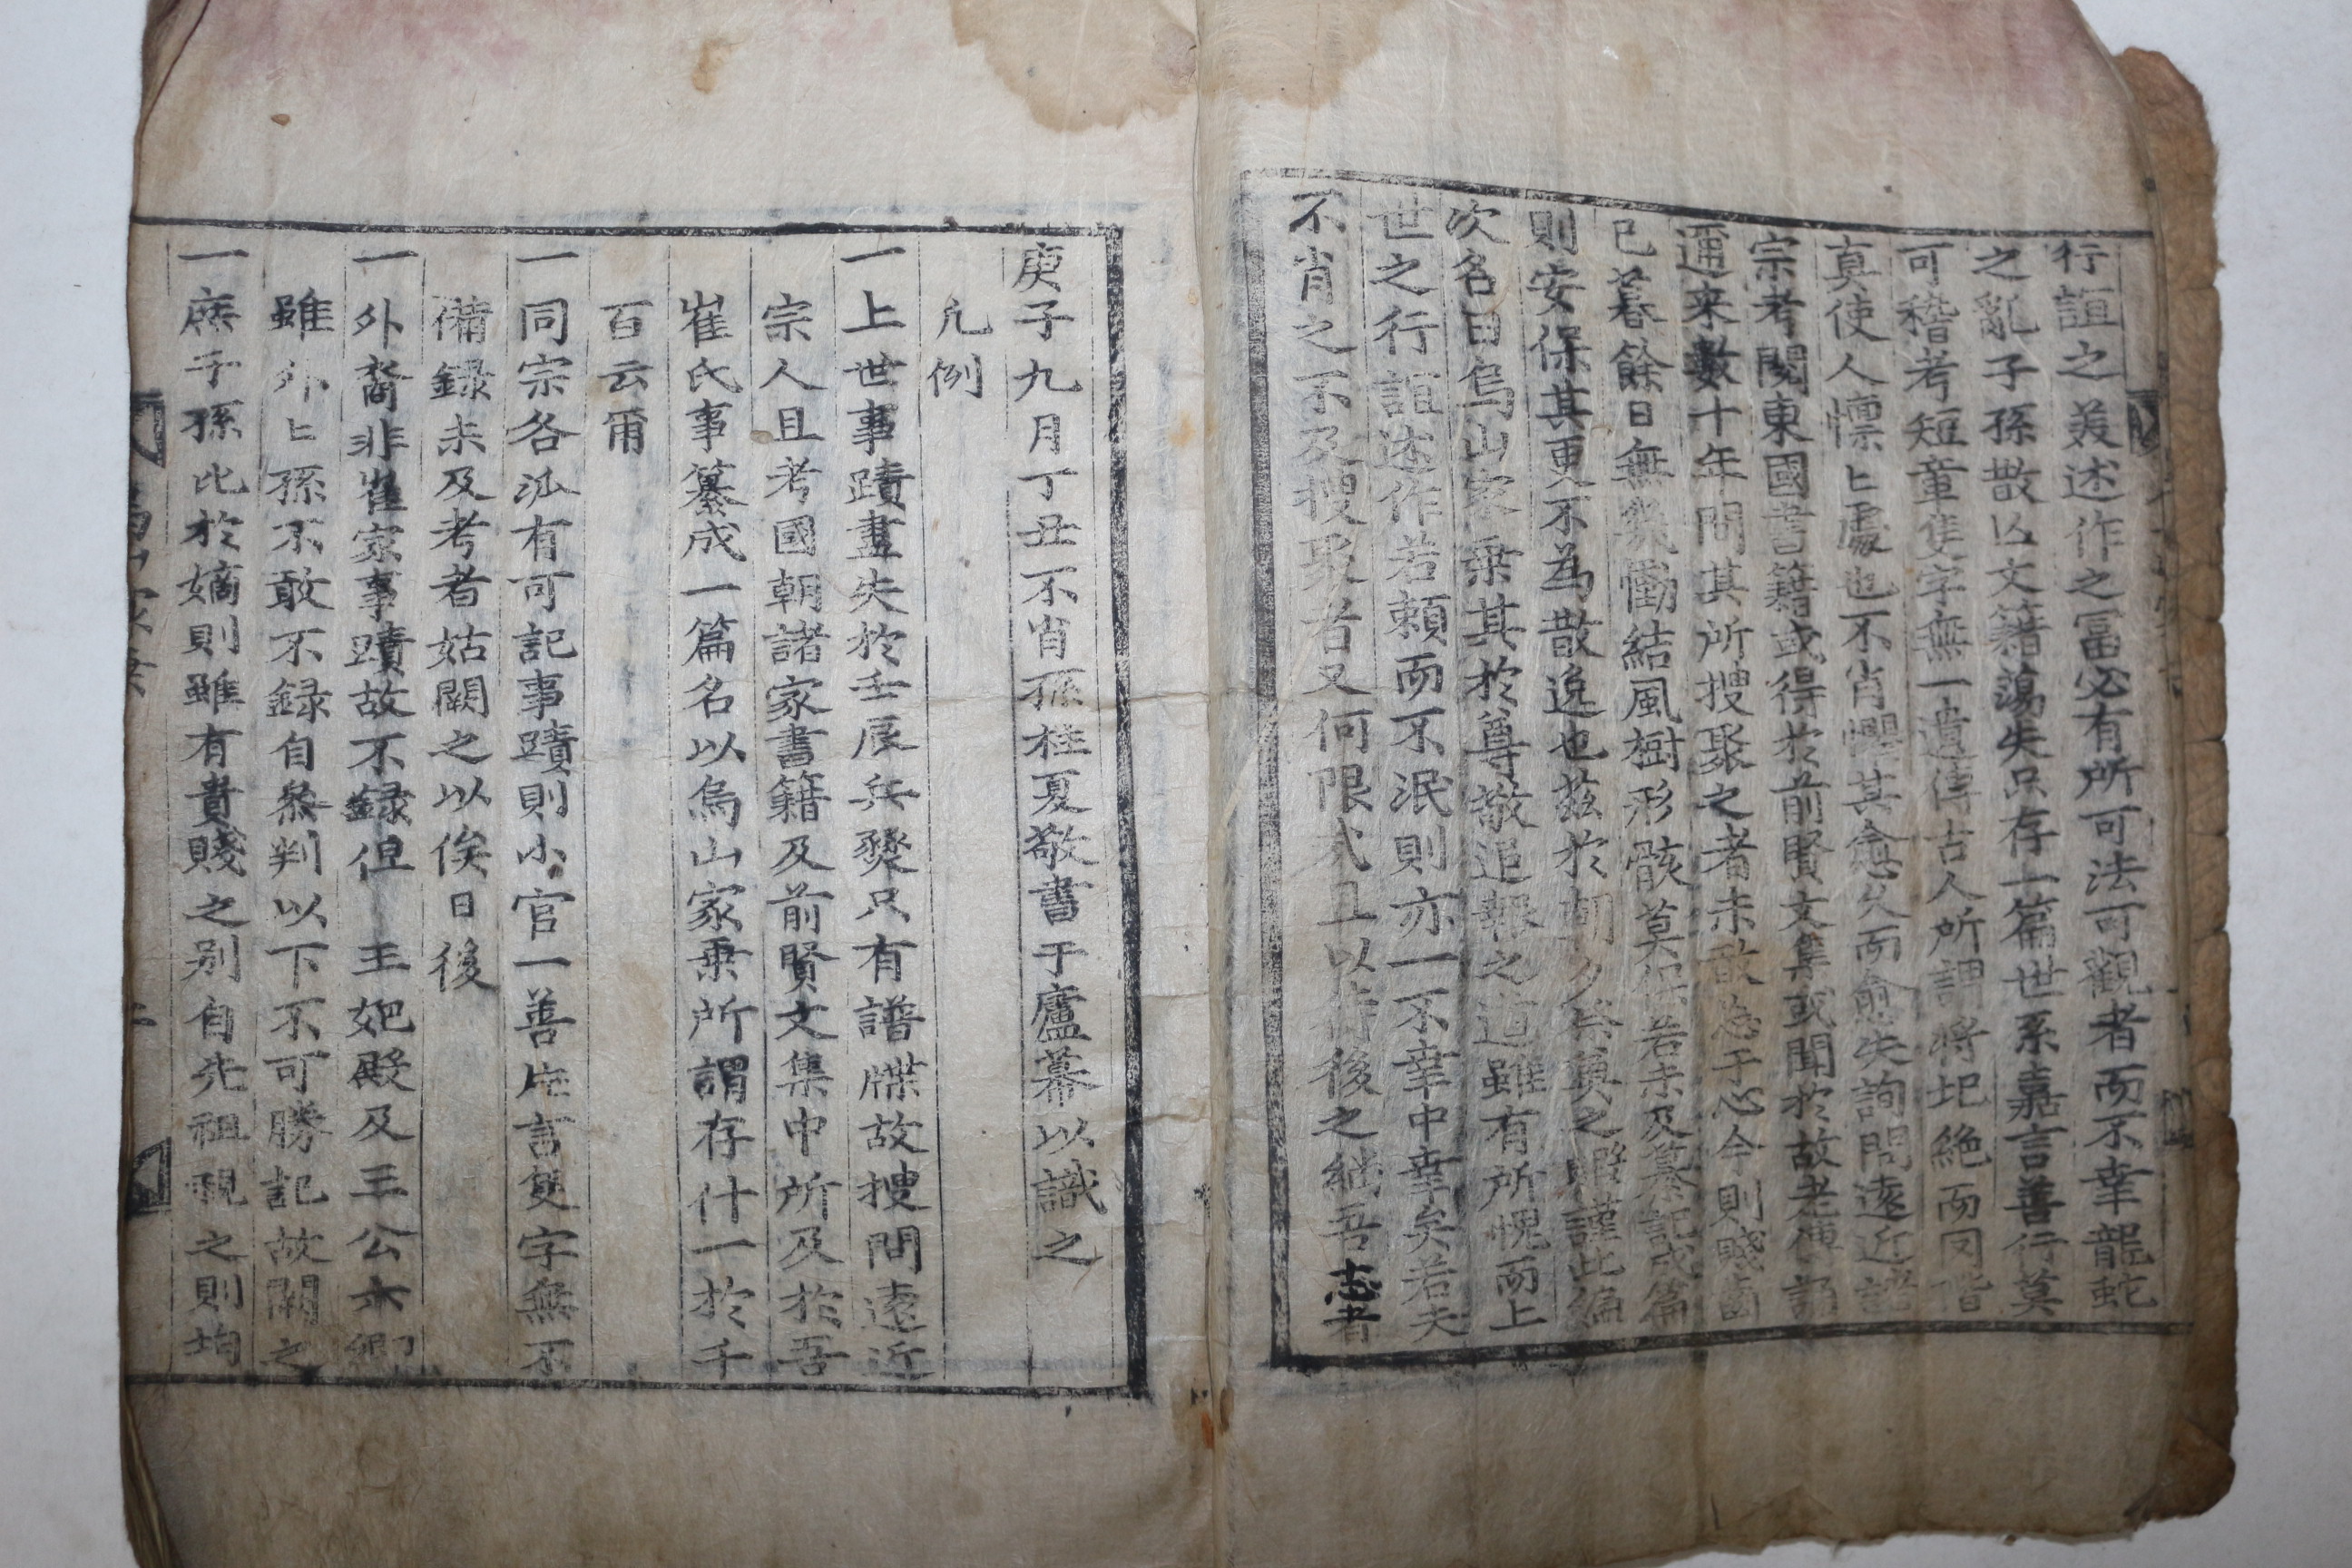 行誼之美述作之富必有所可法可觀者而不幸龍蛇
之亂子孫散亾文籍蕩失只存一篇世系嘉言善行莫
可稽考短童隻字無一遺傳古人所謂將圯絶而同
真使人懍〻處也不肖懼其愈久而愈失詢問遠近諸
宗考閱東國書籍或得於前賢文集或聞於故老傳
邇来數十年間其所搜聚之者未敢忽于心今則賤齒
已暮餘日無幾慟結風樹形骸莫保若未及纂記成篇
則安保其更不為散逸也茲於朝夕祭奠之暇謹此編
次名曰烏山家乗其於尊敬追報之道雖有所愧而上
世之行誼述作若頼而不泯則亦一不幸中幸矣若夫
不肖之不及搜聚者又何限哉且以待後之継吾志者
庚子九月丁丑不肖孫桂夏敬書于廬幕以識之
凡例
一上世事蹟盡失於壬辰兵燹只有譜牒故搜問遠近
宗人且考國朝諸家書籍及前賢文集中所及於吾
崔氏事纂成一篇名以烏山家乗所謂存什一於千
百云甭
一同宗各派有可記事蹟則小官一善片言隻字無不
備録未及考者姑闕之以俟日後
一外裔非崔家事蹟故不録但 王妃殿及三公六卿
雖外〻孫不敢不録自叅判以下不可勝記故闕之
一庶子孫比於嫡則雖有貴賤之别自先祖視之則均